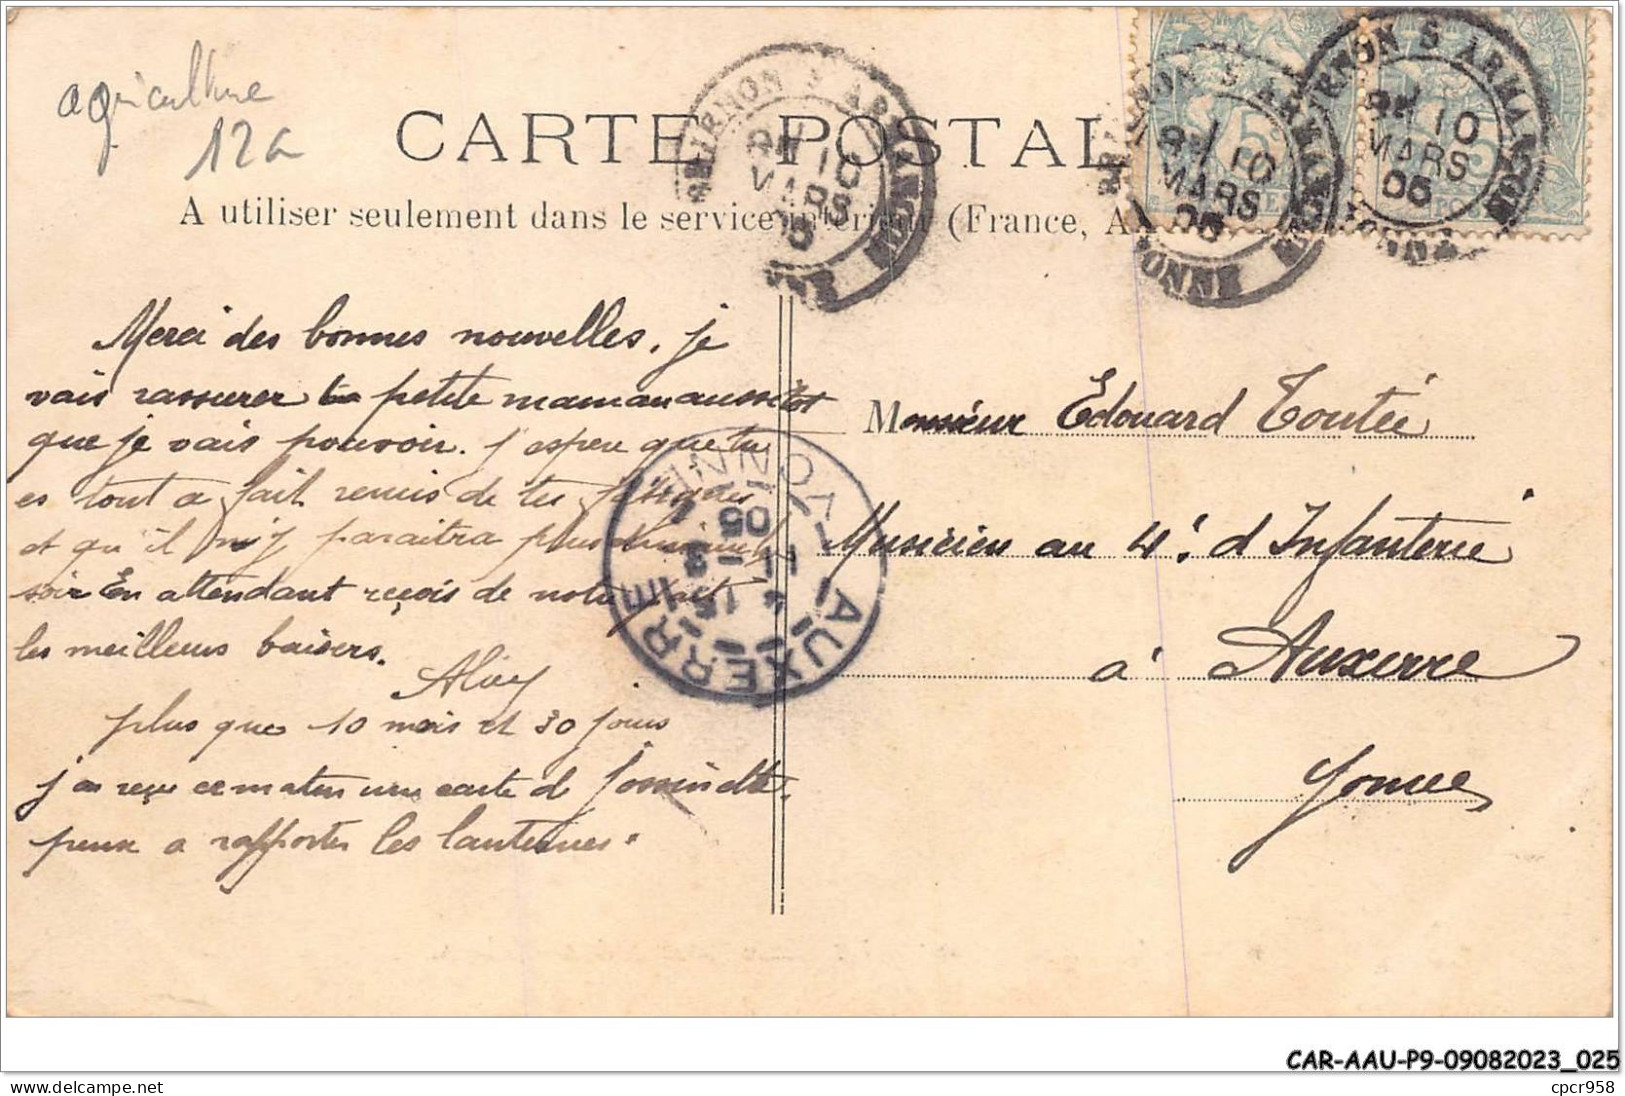 agriculture
12a
CARTE POSTAL
A utiliser seulement dans le service intérieur (France, A
VERNON S ARMANÇON
10
MARS
05
YONNE
Merci des bonnes nouvelles. je
vais rassurer ta petite maman aussitôt
que je vais pouvoir. j'espere que tu
es tout a fait remis de tes fatigues
et qu'il n'y paraitra plus
soir En attendant reçois de notre part
les meilleurs baisers.
plus que 10 mois et 30 jours
j'ai reçu ce matin une carte de
peux a rapporter les lanternes.
Monsieur Edouard Toutée
Musicien au 4e d'Infanterie
à Auxerre
Yonne
AUXERRE
YONNE
4 15
11 - 3
05
CAR-AAU-P9-09082023_025
delcampe.net
cpcr958